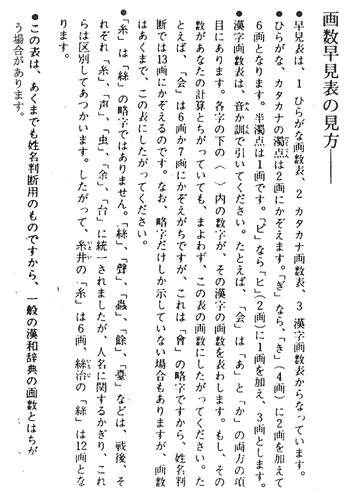 画数早見表の見方――
● 早見表は、1 ひらがな画数表、2 カタカナ画数表、3 漢字画数表からなっています。
● ひらがな、カタカナの濁点は2画にかぞえます。「ぎ」なら、「き」(4画)に2画を加えて
6画となります。半濁点は1画です。「ピ」なら「ヒ」(2画)に1画を加え、3画とします。
● 漢字画数表は、音か訓で引いてください。たとえば、「会」は「あ」と「か」の両方の項
目にあります。各字の下の〈 〉内の数字が、その漢字の画数を表わします。もし、その
数があなたの計算とちがっていても、まよわず、この表の画数にしたがってください。た
とえば、「会」は6画か7画にかぞえがちですが、これは「會」の略字ですから、姓名判
断では13画にかぞえるのです。なお、略字だけしか示していない場合もありますが、画数
はあくまで、この表にしたがってください。
● 「糸」は「絲」の略字ではありません。「絲」、「聲」、「蟲」、「餘」、「臺」などは、戦後、そ
れぞれ「糸」、「声」、「虫」、「余」、「台」に統一されましたが、人名に関するかぎり、これ
らは区別してあつかいます。したがって、糸井の「糸」は6画、絲治の「絲」は12画とな
ります。
● この表は、あくまでも姓名判断用のものですから、一般の漢和辞典の画数とはちが
う場合があります。